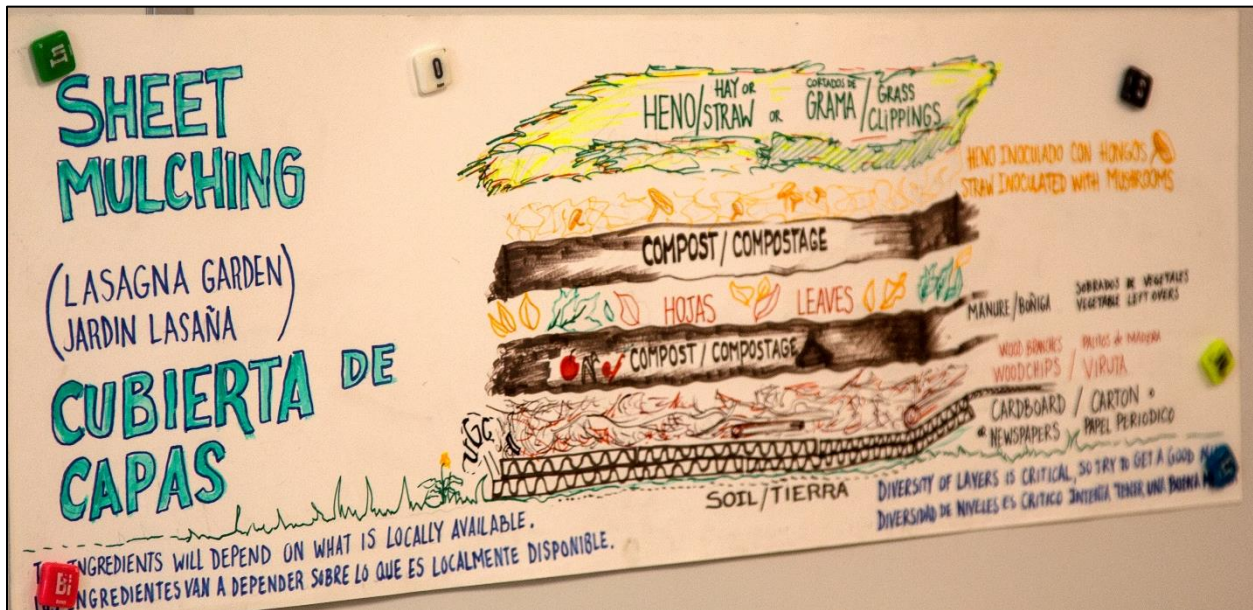 SHEET
MULCHING
(LASAGNA GARDEN)
JARDIN LASAÑA
CUBIERTA DE
CAPAS
HENO/HAY OR STRAW OR CORTADOS DE GRAMA/GRASS CLIPPINGS
HENO INOCULADO CON HONGOS
STRAW INOCULATED WITH MUSHROOMS
COMPOST/COMPOSTAGE
HOJAS LEAVES
MANURE/BOÑIGA
SOBRADOS DE VEGETALES
VEGETABLE LEFT OVERS
COMPOST/COMPOSTAGE
WOOD BRANCHES / PALITOS de MADERA
WOODCHIPS / VIRUTA
CARDBOARD / CARTON o
NEWSPAPERS / PAPEL PERIODICO
SOIL/TIERRA
DIVERSITY OF LAYERS IS CRITICAL, SO TRY TO GET A GOOD
DIVERSIDAD DE NIVELES ES CRITICO INTENTA TENER UNA BUENA
INGREDIENTS WILL DEPEND ON WHAT IS LOCALLY AVAILABLE.
INGREDIENTES VAN A DEPENDER SOBRE LO QUE ES LOCALMENTE DISPONIBLE.
In
O
Bi